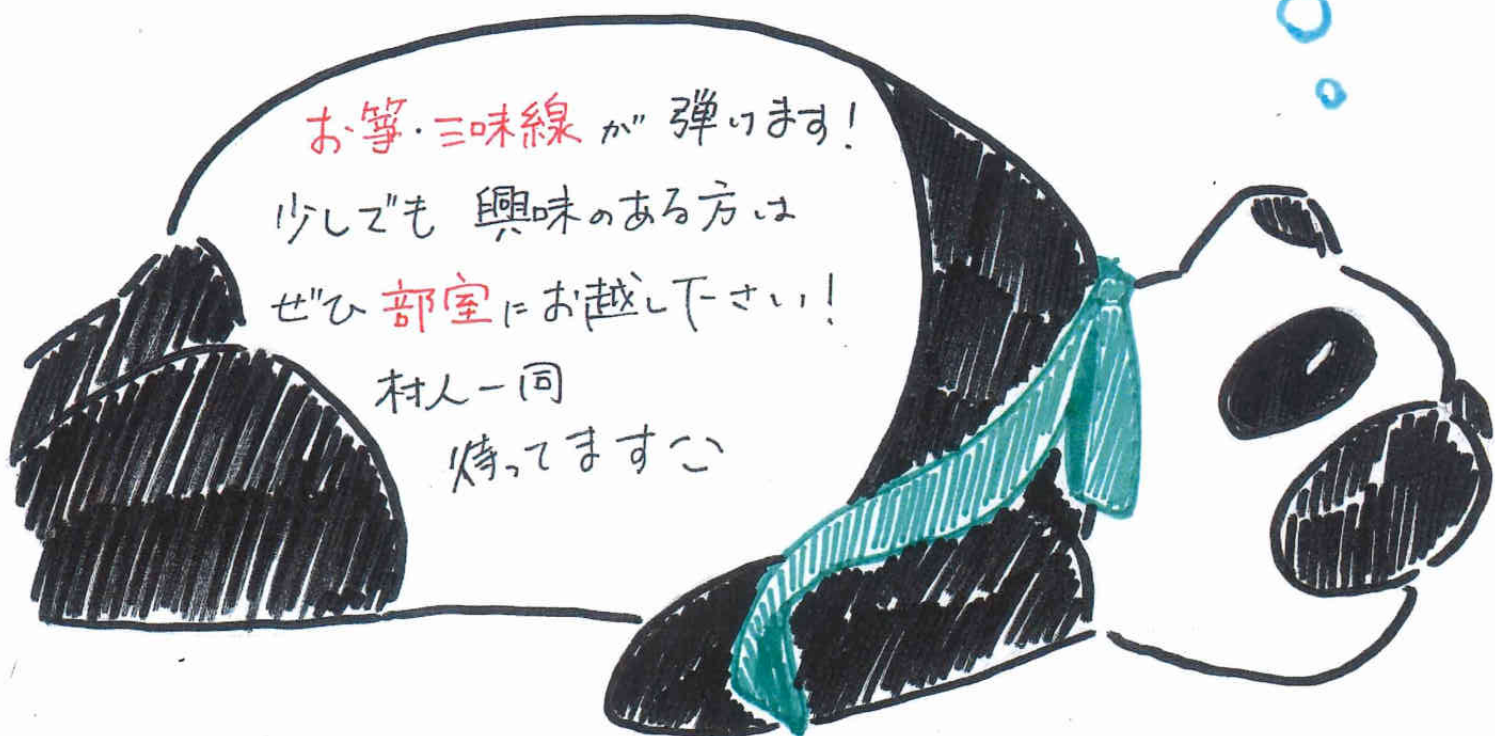 お箏・三味線が弾けます!
少しでも興味のある方は
ぜひ部室にお越し下さい!
村人一同
待ってます